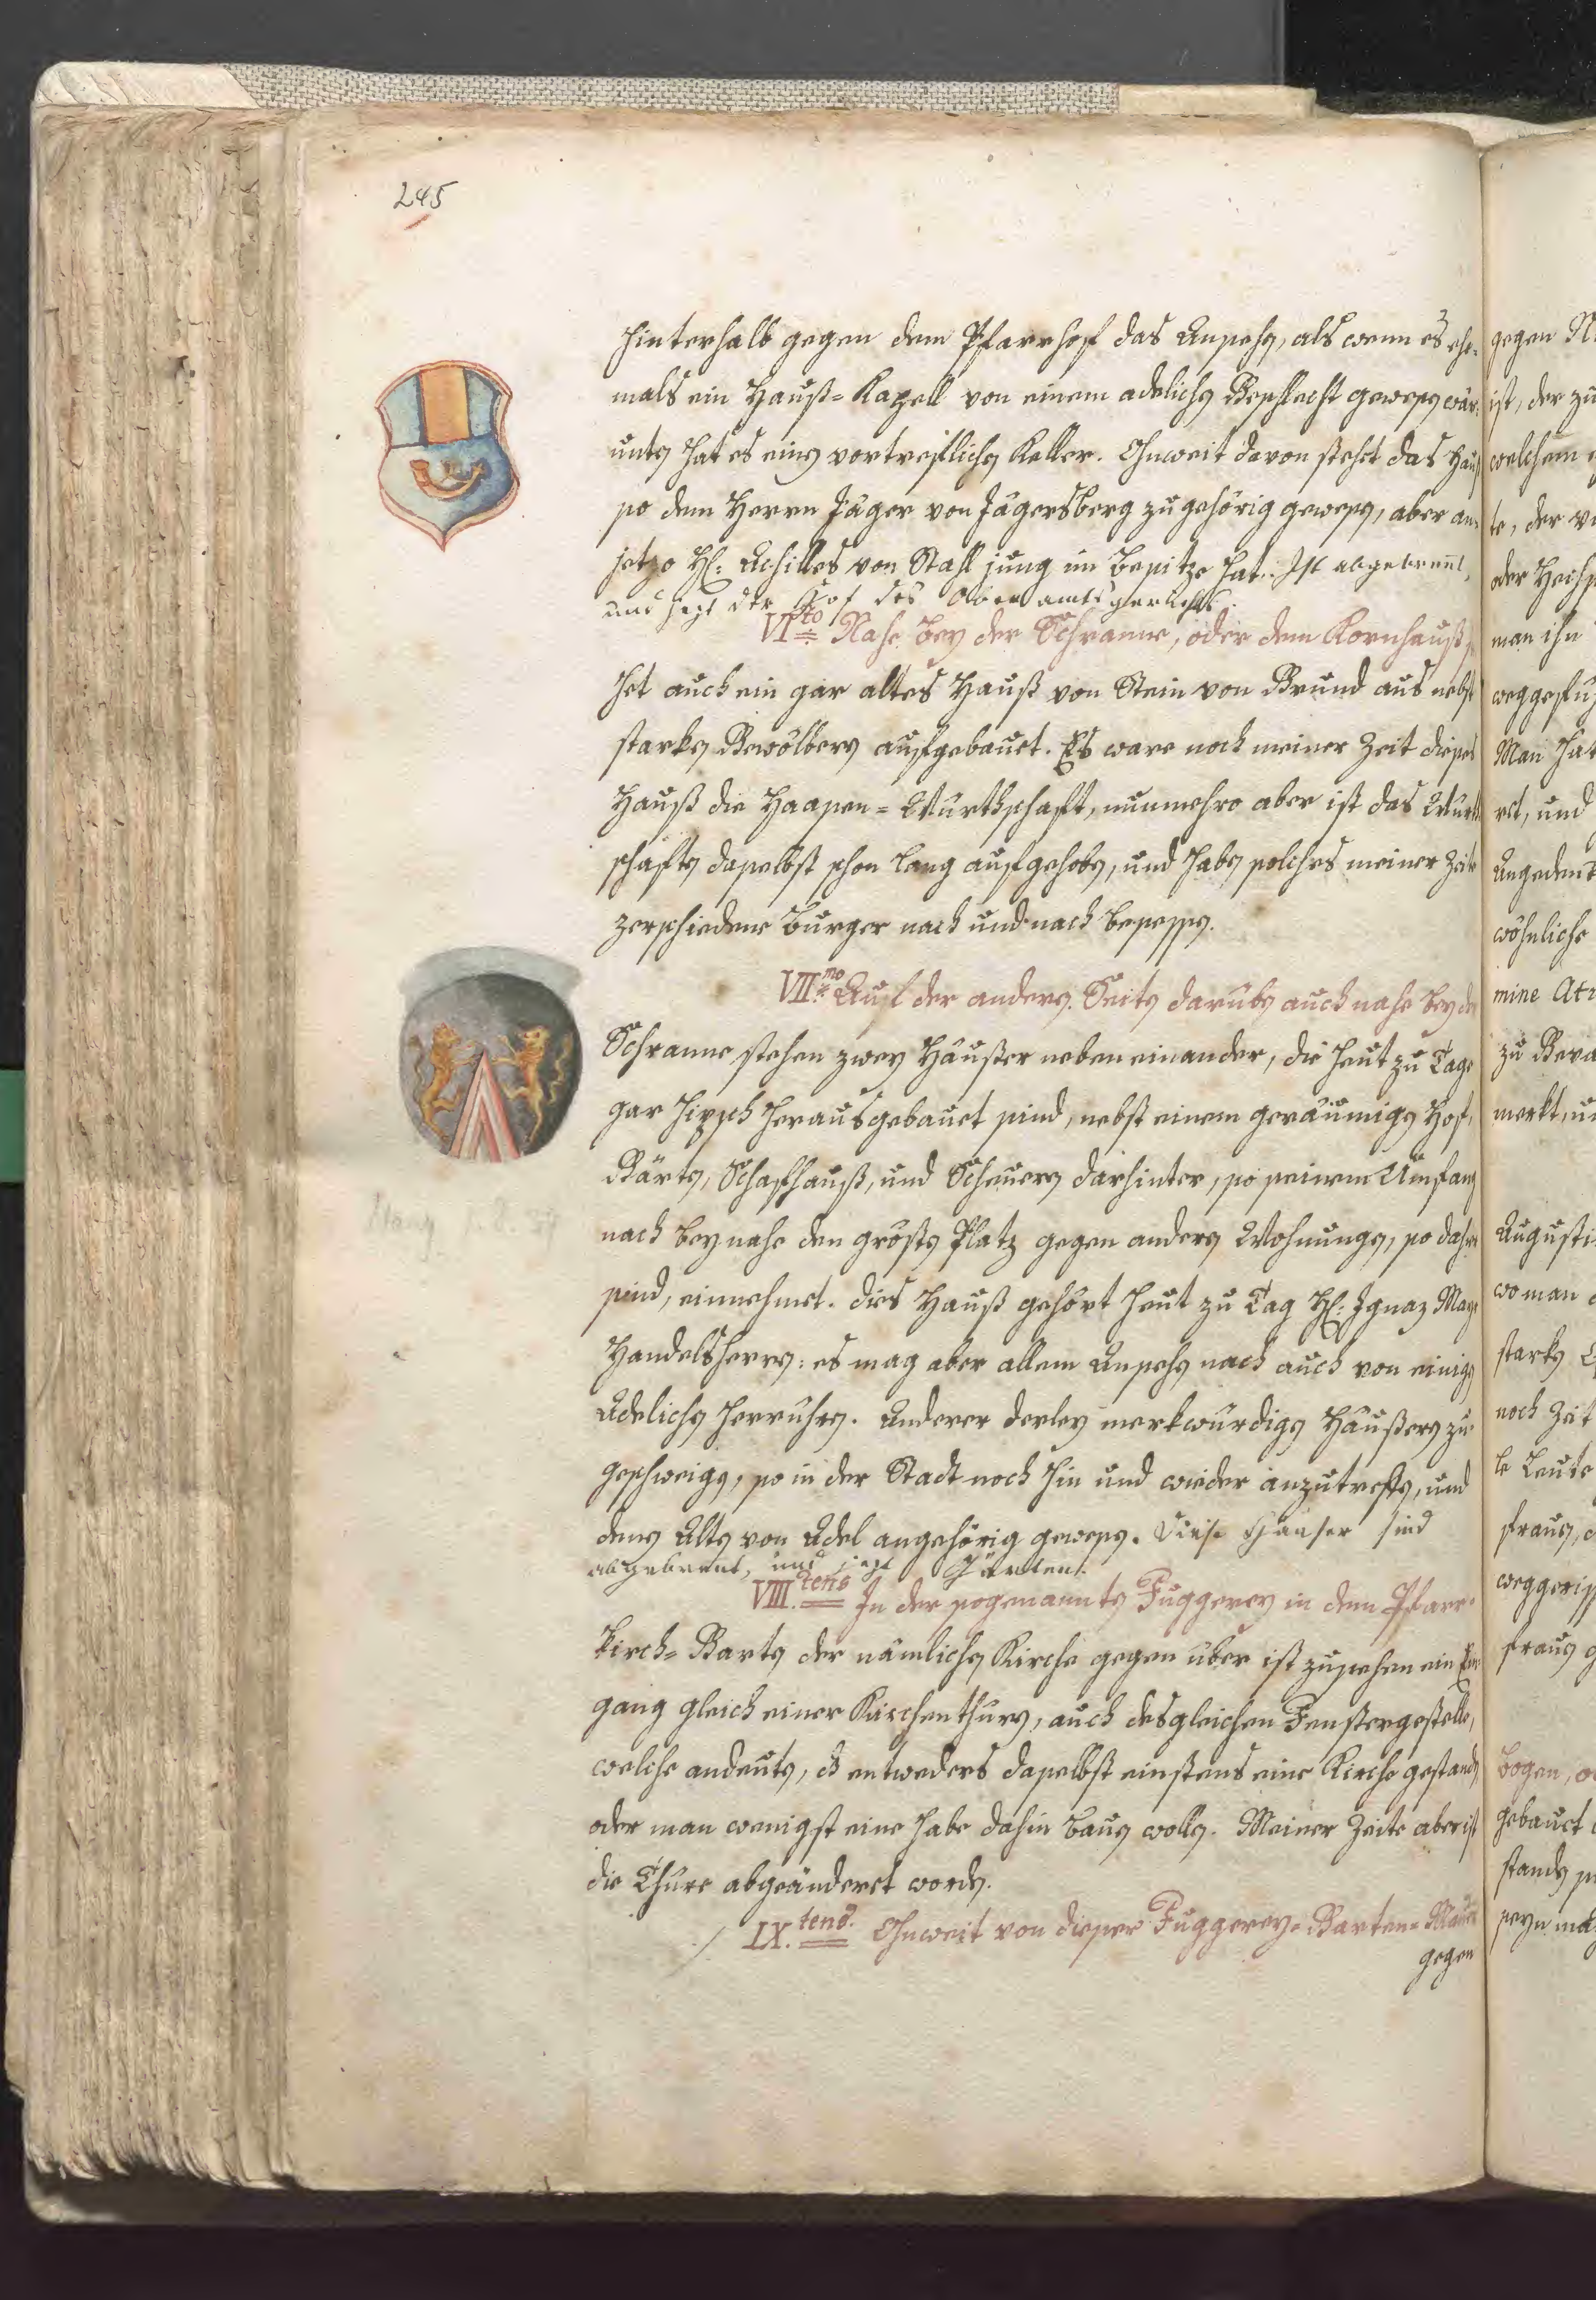 245
hinterhalb gegen dem Pfarrhof das Ansehen, als wenn es ehe-
mals ein Hauß-Kapell von einem adelichen Geschlecht gewesen wär.
unten hat es einen vortreflichen Keller. Ohnweit davon stehet das Hauß
so dem Herrn Jäger von Jägersberg zugehörig gewesen, aber an-
jetzo H: Achilles von Stahl jung im Besitze hat. Ist abgebrennt,
und jezt der Hof des Oberamtsgerichts.
VIto Nahe bey der Schranne, oder dem Kornhauß
het auch ein gar altes Hauß von Stein von Grund aus nebst
starken Gewölbern aufgebauet. Es ware noch meiner Zeit dieses
Hauß die Haasen-Würthschaft, nunmehro aber ist das Würth
schaften daselbst schon lang aufgehoben, und haben solches meiner Zeit
zerschiedene Burger nach und nach besessen.
VIImo Auf der anderen Seiten darüben auch nahe bey der
Schranne stehen zwey Häußer neben einander, die heut zu Tage
gar hipsch herausgebauet sind, nebst einem geräumigen Hof,
Gärten, Schafhauß, und Scheuern darhinter, so seinem Umfang
nach bey nahe den grösten Platz gegen andern Wohnungen, so dahier
sind, einnehmet. dies Hauß gehört heut zu Tag H: Ignaz
Handelsherrn: es mag aber allem Ansehen nach auch von einigen
Adelichen herrühren. Anderer derley merkwürdigen Häußern zu
geschweigen, so in der Stadt noch hin und wieder anzutreffen, und
denen Alten von Adel angehörig gewesen. Diese Häuser sind
abgebrennt, und jezt Gärten.
VIII.tens In der sogenannten Fuggerey in dem Pfarr-
kirch-Garten der nämlichen Kirche gegen über ist zusehen ein Ein
gang gleich einer Kirchenthüren, auch desgleichen Fenstergestelle,
welche andeuten, dß entweders daselbst einstens eine Kirche gestanden
oder man wenigst eine habe dahin bauen wollen. Meiner Zeite aber ist
die Thüre abgeänderet worden.
IX.tens. Ohnweit von dieser Fuggerey-Garten-Mauer
gegen
gegen
ist, der zu
welchem
te, der
oder
man ihn
Man hat
ret, und
wöhnliche
mine
zu
merkt,
Augusti
wo man
starken
noch Zeit
le Leute
Bogen,
gebauet
seyn